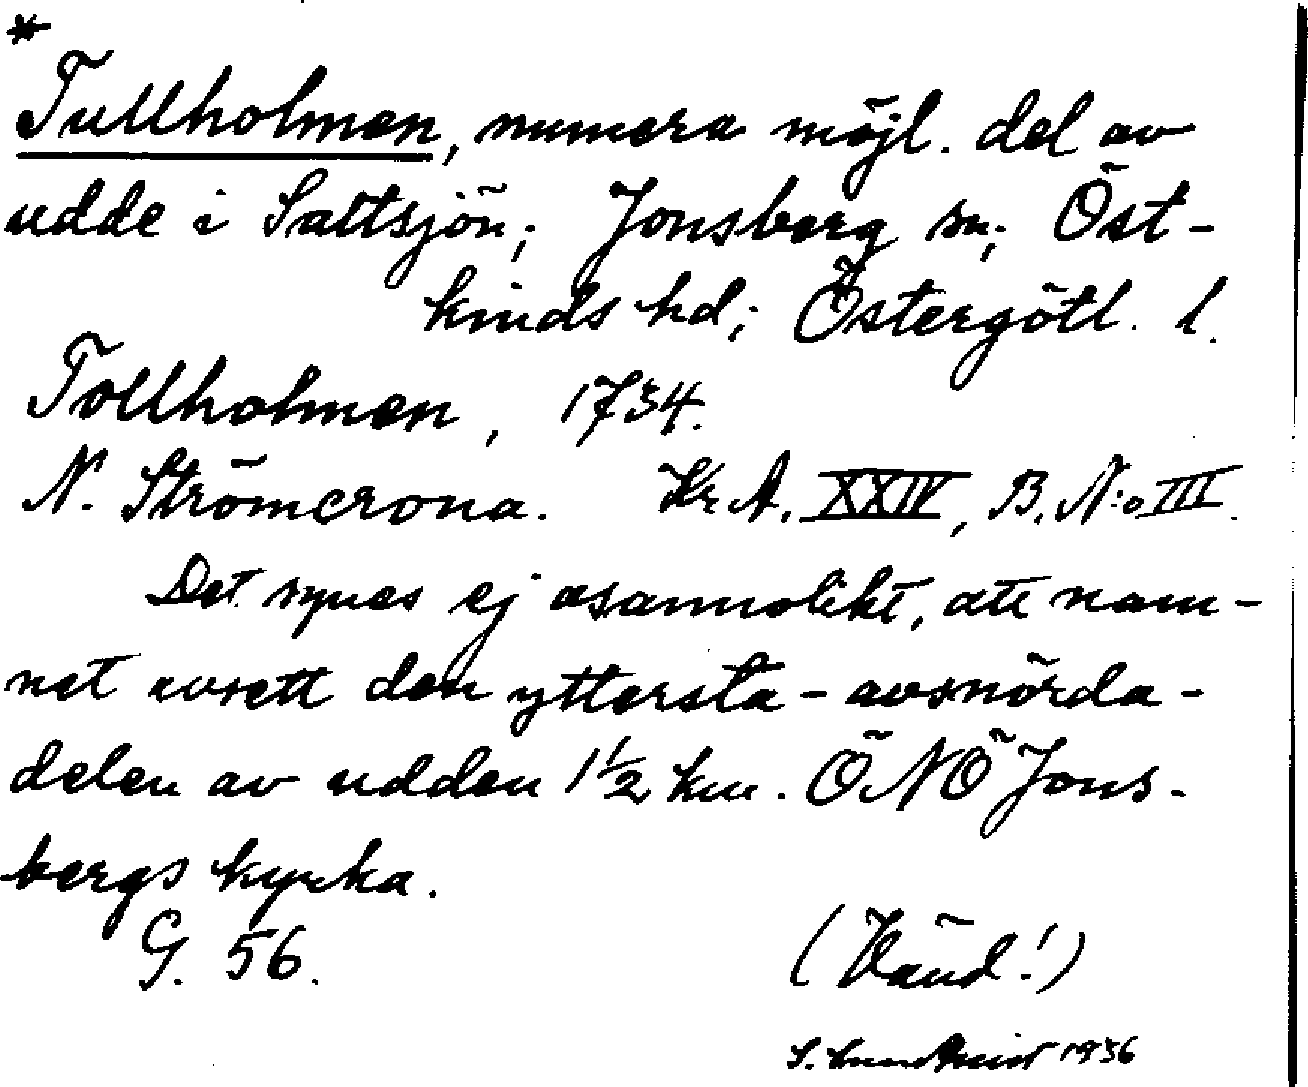 *
Tullholmen, numera möjl. del av
udde i Saltsjön; Jonsberg sn; Öst-
kinds hd; Östergötl. l.
Tollholmen, 1734.
N. Strömcrona. Kr. A. XXIV, B. N:o III.
Det synes ej osannolikt, att nam-
net avsett den yttersta - avsnörda -
delen av udden 1 1/2 km. ÖNÖ Jons-
bergs kyrka.
G. 56.
(Vänd!)
S. 1936